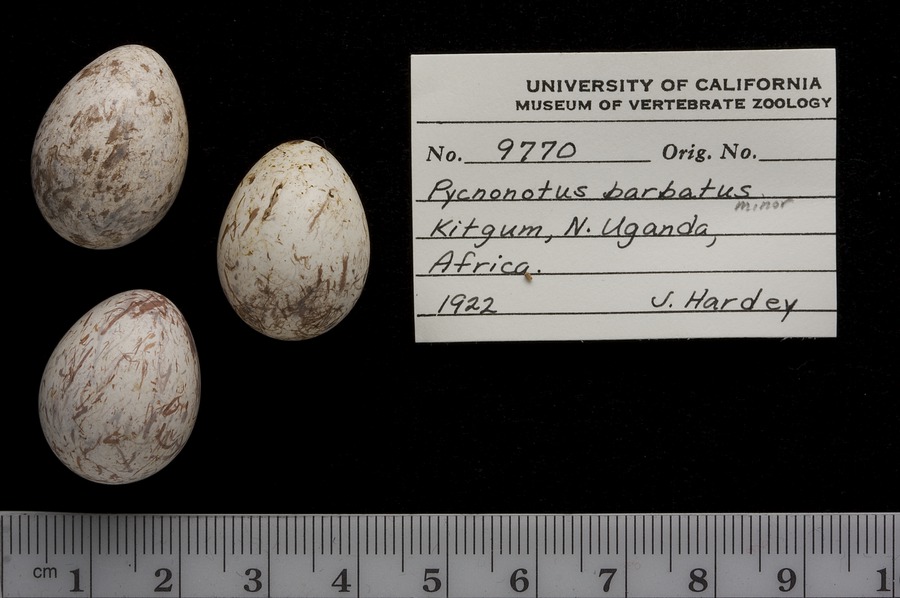 UNIVERSITY OF CALIFORNIA
MUSEUM OF VERTEBRATE ZOOLOGY
No. 9770 Orig. No.
Pycnonotus barbatus
minor
Kitgum, N. Uganda,
Africa.
1922 J. Hardey
cm 1 2 3 4 5 6 7 8 9 1